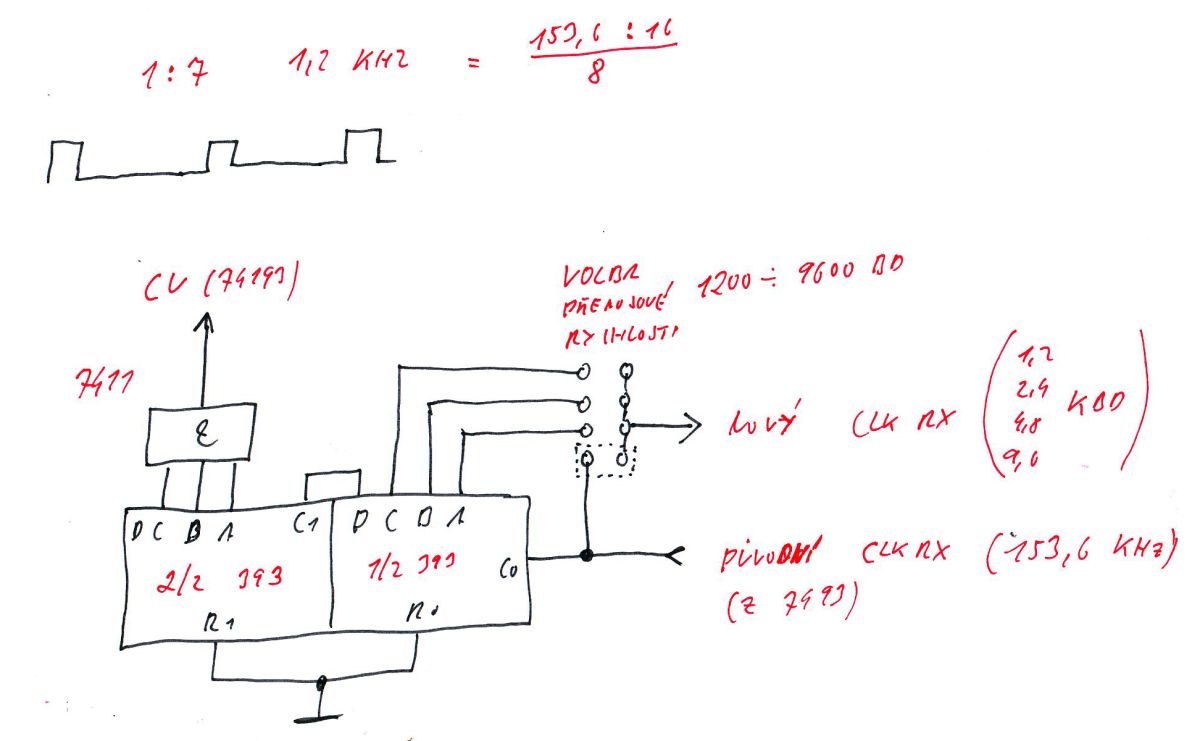 1:7 1,2 KHZ = 153,6 : 16
8
CU (74193)
VOLBA
PŘENOSOVÉ
RYCHLOSTI
1200 ÷ 9600 BD
7411
&
NOVÝ CLK RX
1,2
2,4
4,8
9,6
KBD
D C B A C1 D C B A
2/2 393 1/2 393 C0
R1 R0
PŮVODNÍ CLK RX (153,6 KHz)
(Z 7493)